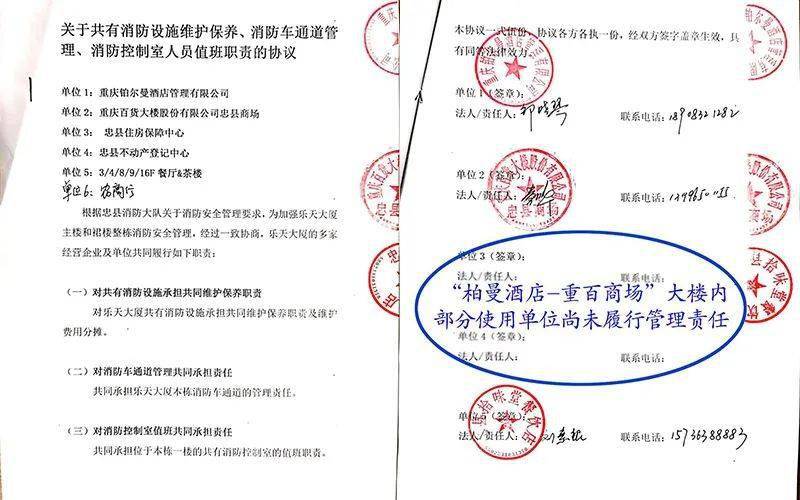 关于共有消防设施维护保养、消防车通道管
理、消防控制室人员值班职责的协议
单位1：重庆铂尔曼酒店管理有限公司
单位2：重庆百货大楼股份有限公司忠县商场
单位3： 忠县住房保障中心
单位4：忠县不动产登记中心
单位5：3/4/8/9/16F 餐厅&茶楼
单位6：农商行
根据忠县消防大队关于消防安全管理要求，为加强乐天大厦
主楼和裙楼整栋消防安全管理，经过一致协商，乐天大厦的多家
经营企业及单位共同履行如下职责：
（一）对共有消防设施承担共同维护保养职责
对乐天大厦共有消防设施承担共同维护保养职责及维护
费用分摊。
（二）对消防车通道管理共同承担责任
共同承担乐天大厦本栋消防车通道的管理责任。
（三）对消防控制室值班共同承担责任
共同承担位于本栋一楼的共有消防控制室的值班职责。
本协议一式伍份，协议各方各执一份，经双方签字盖章生效，具
有同等法律效力。
单位1（签章）：
法人/责任人：
联系电话：18908321282
单位2（签章）：
法人/责任人：
联系电话：
单位3（签章）：
法人/责任人：
联系电话：
“柏曼酒店-重百商场”大楼内
部分使用单位尚未履行管理责任
单位4（签章）：
法人/责任人：
联系电话：
（签章）：
法人/责任人：
联系电话：15736388883
拾味堂餐饮店